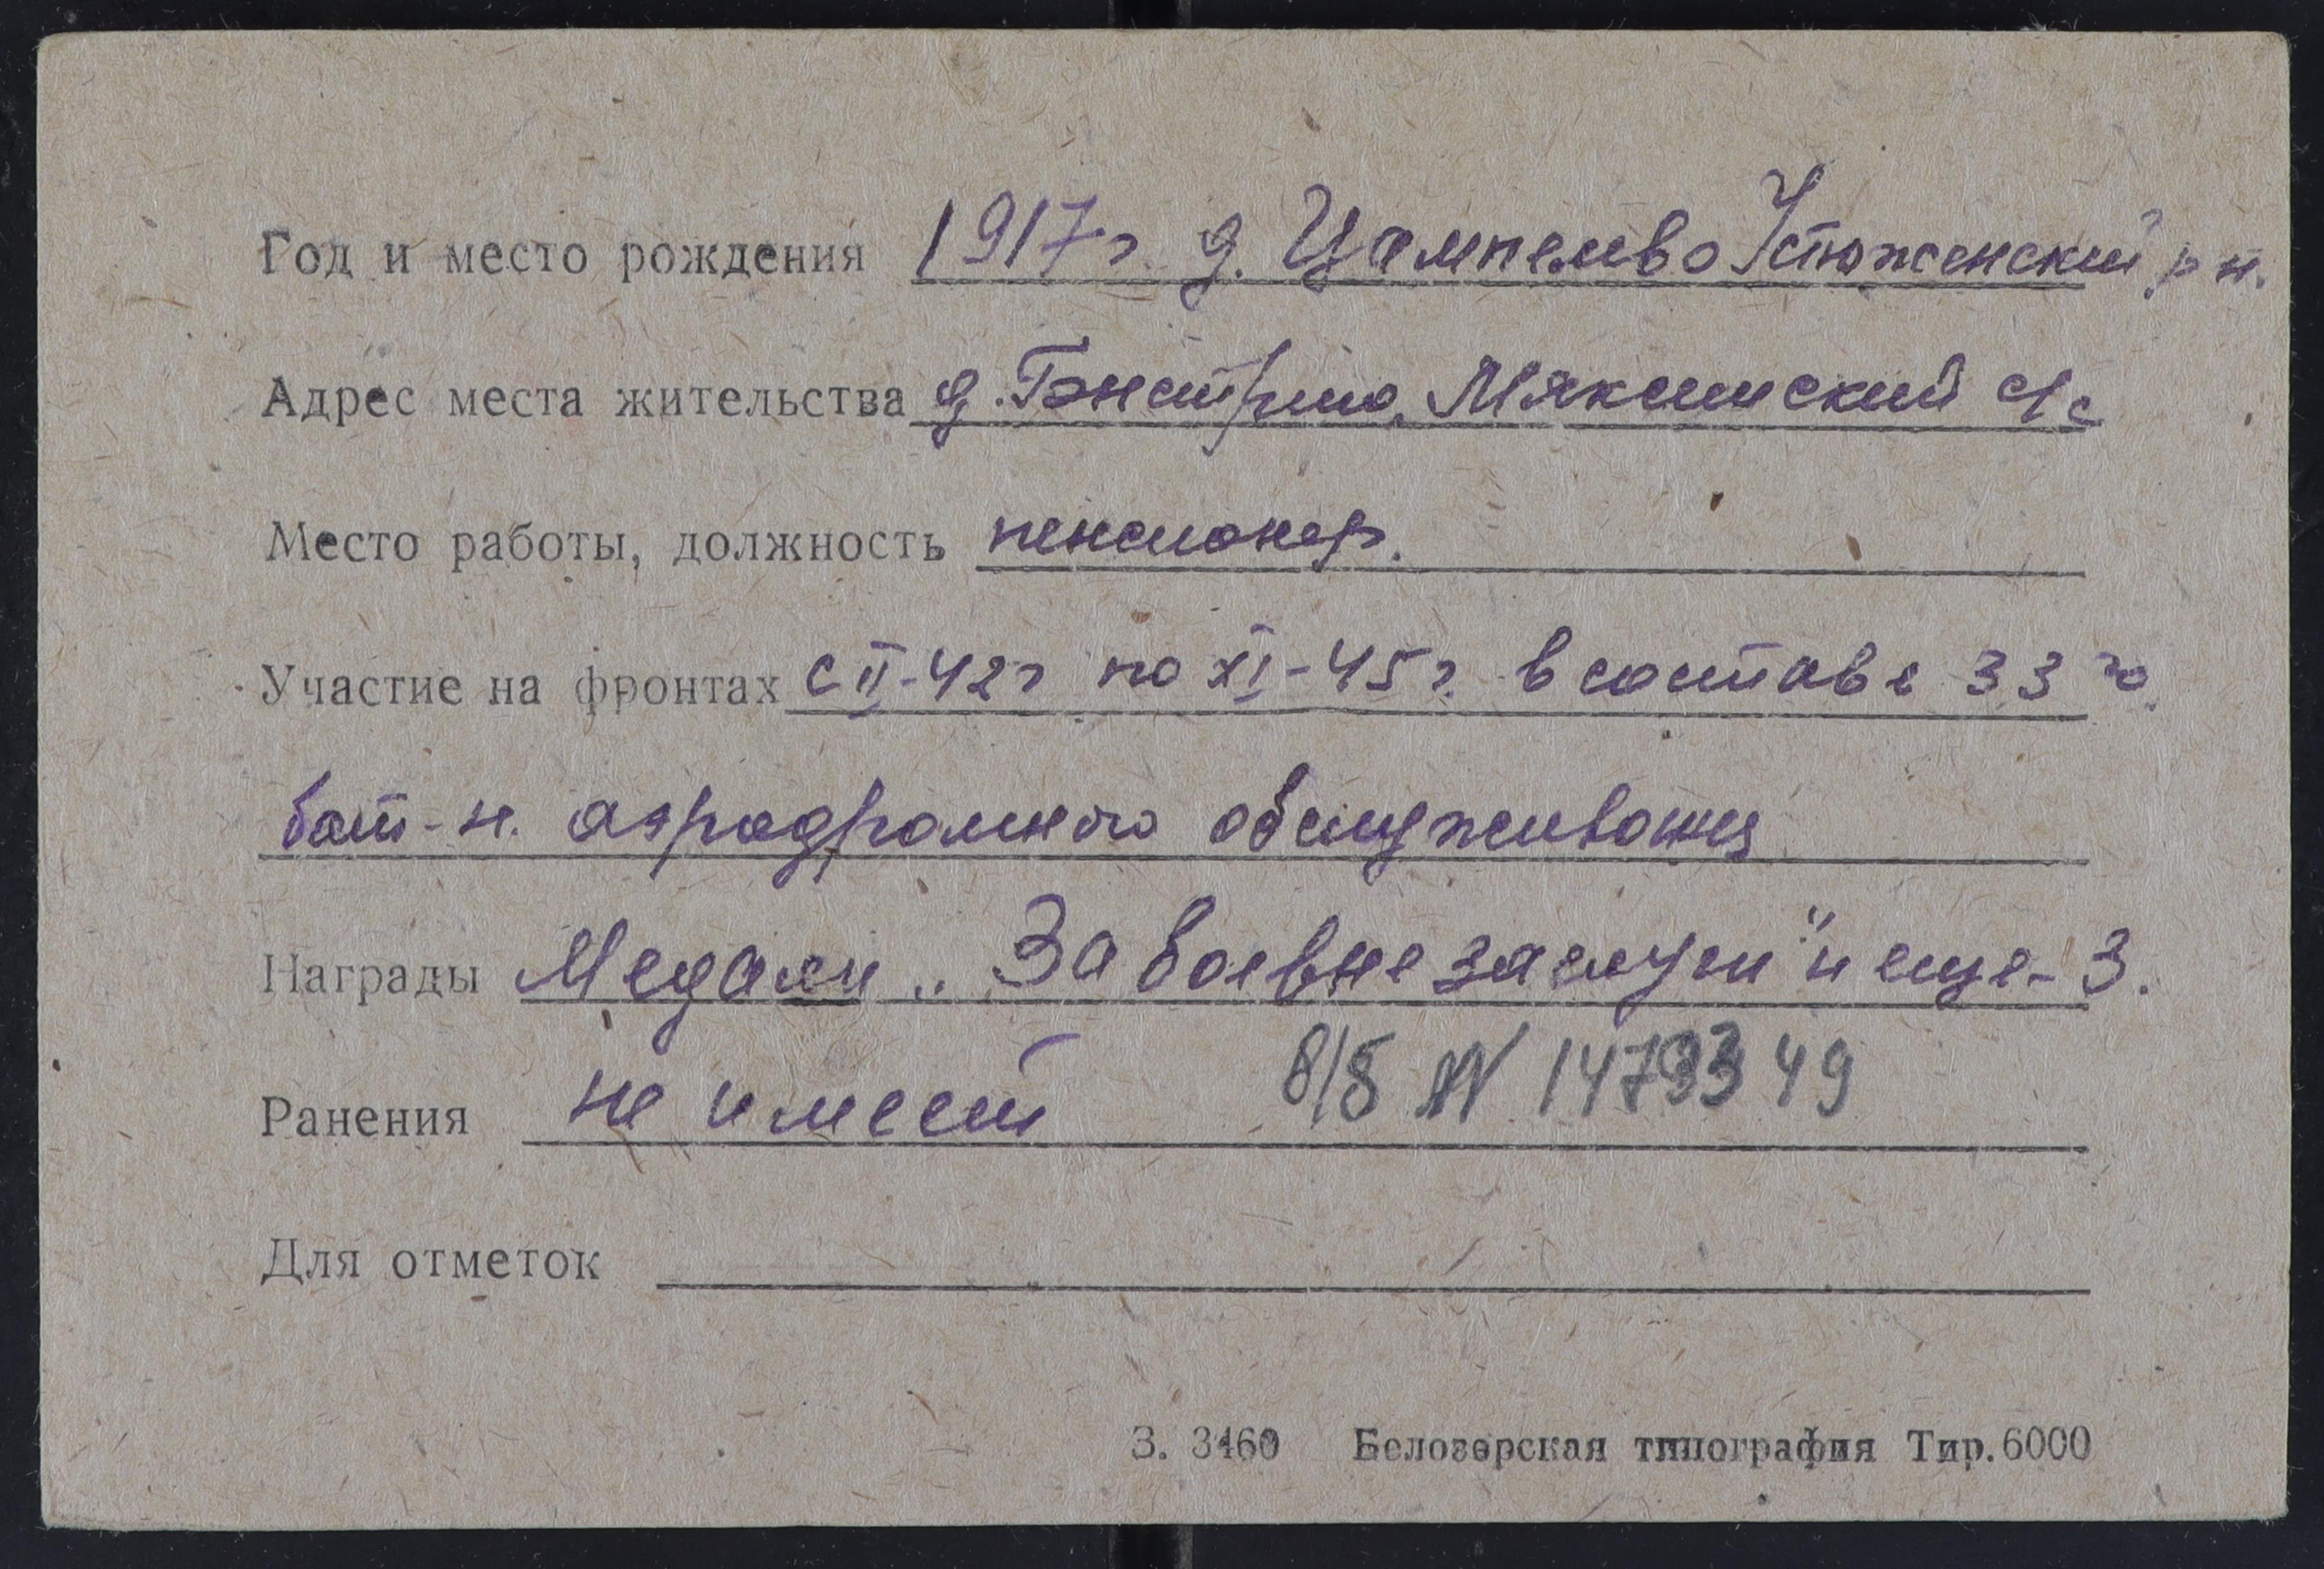 Год и место рождения 1917 г. д. Цампелево Устюженский р-н.
Адрес места жительства д. Быстрино, Мяксинский с/с
Место работы, должность пенсионер.
Участие на фронтах с II-42 г по XI-45 г. в составе 33 го
бат-н. аэродромного обслуживания
Награды Медали „За боевые заслуги" и еще - 3.
Ранения не имеет 8/Б № 1479349
Для отметок
З. 3460 Белозерская типография Тир. 6000